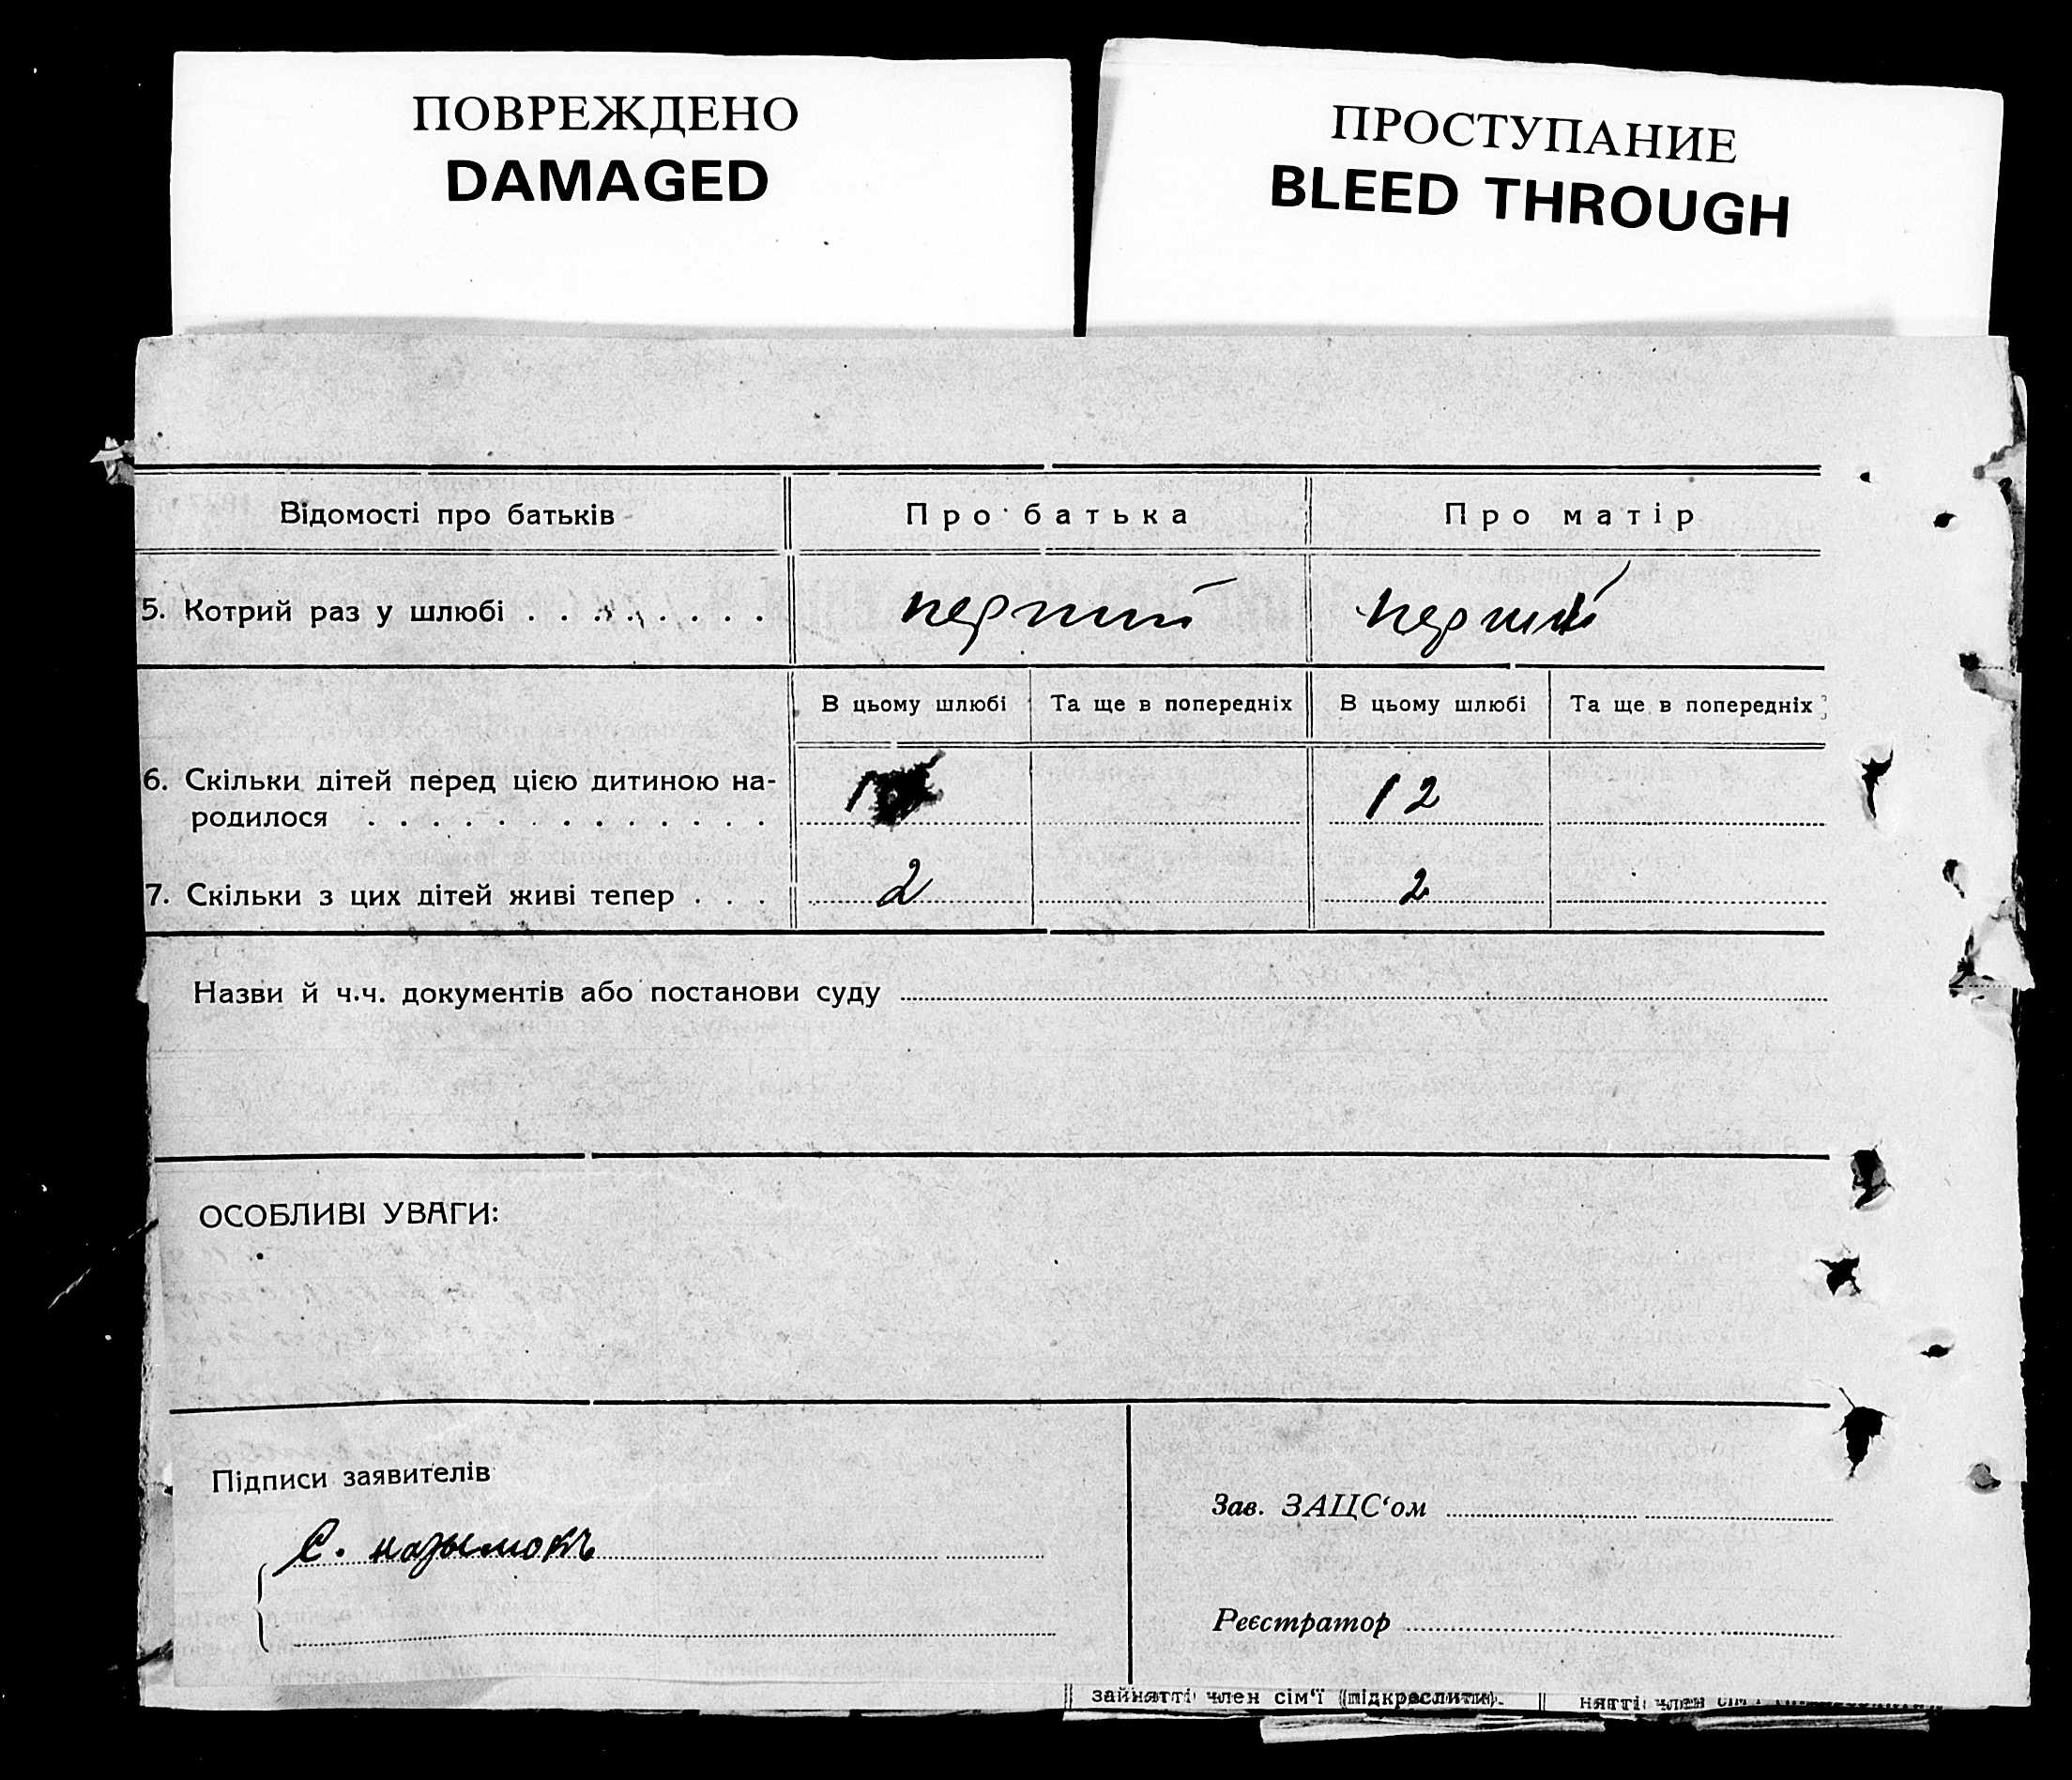 ПОВРЕЖДЕНО
DAMAGED
ПРОСТУПАНИЕ
BLEED THROUGH
Відомості про батьків
Про батька
Про матір
5. Котрий раз у шлюбі . . . . . . . . .
перший
перший
В цьому шлюбі
Та ще в попередніх
В цьому шлюбі
Та ще в попередніх
6. Скільки дітей перед цією дитиною на-
родилося . . . . . . . . . . . . .
1
12
7. Скільки з цих дітей живі тепер . . .
2
2
Назви й ч.ч. документів або постанови суду
2
ОСОБЛИВІ УВАГИ:
Підписи заявителів
С.
Зав. ЗАЦС‘ом
Реєстратор
зайнятті член сім‘ї (підкреслити).
нятті член сім